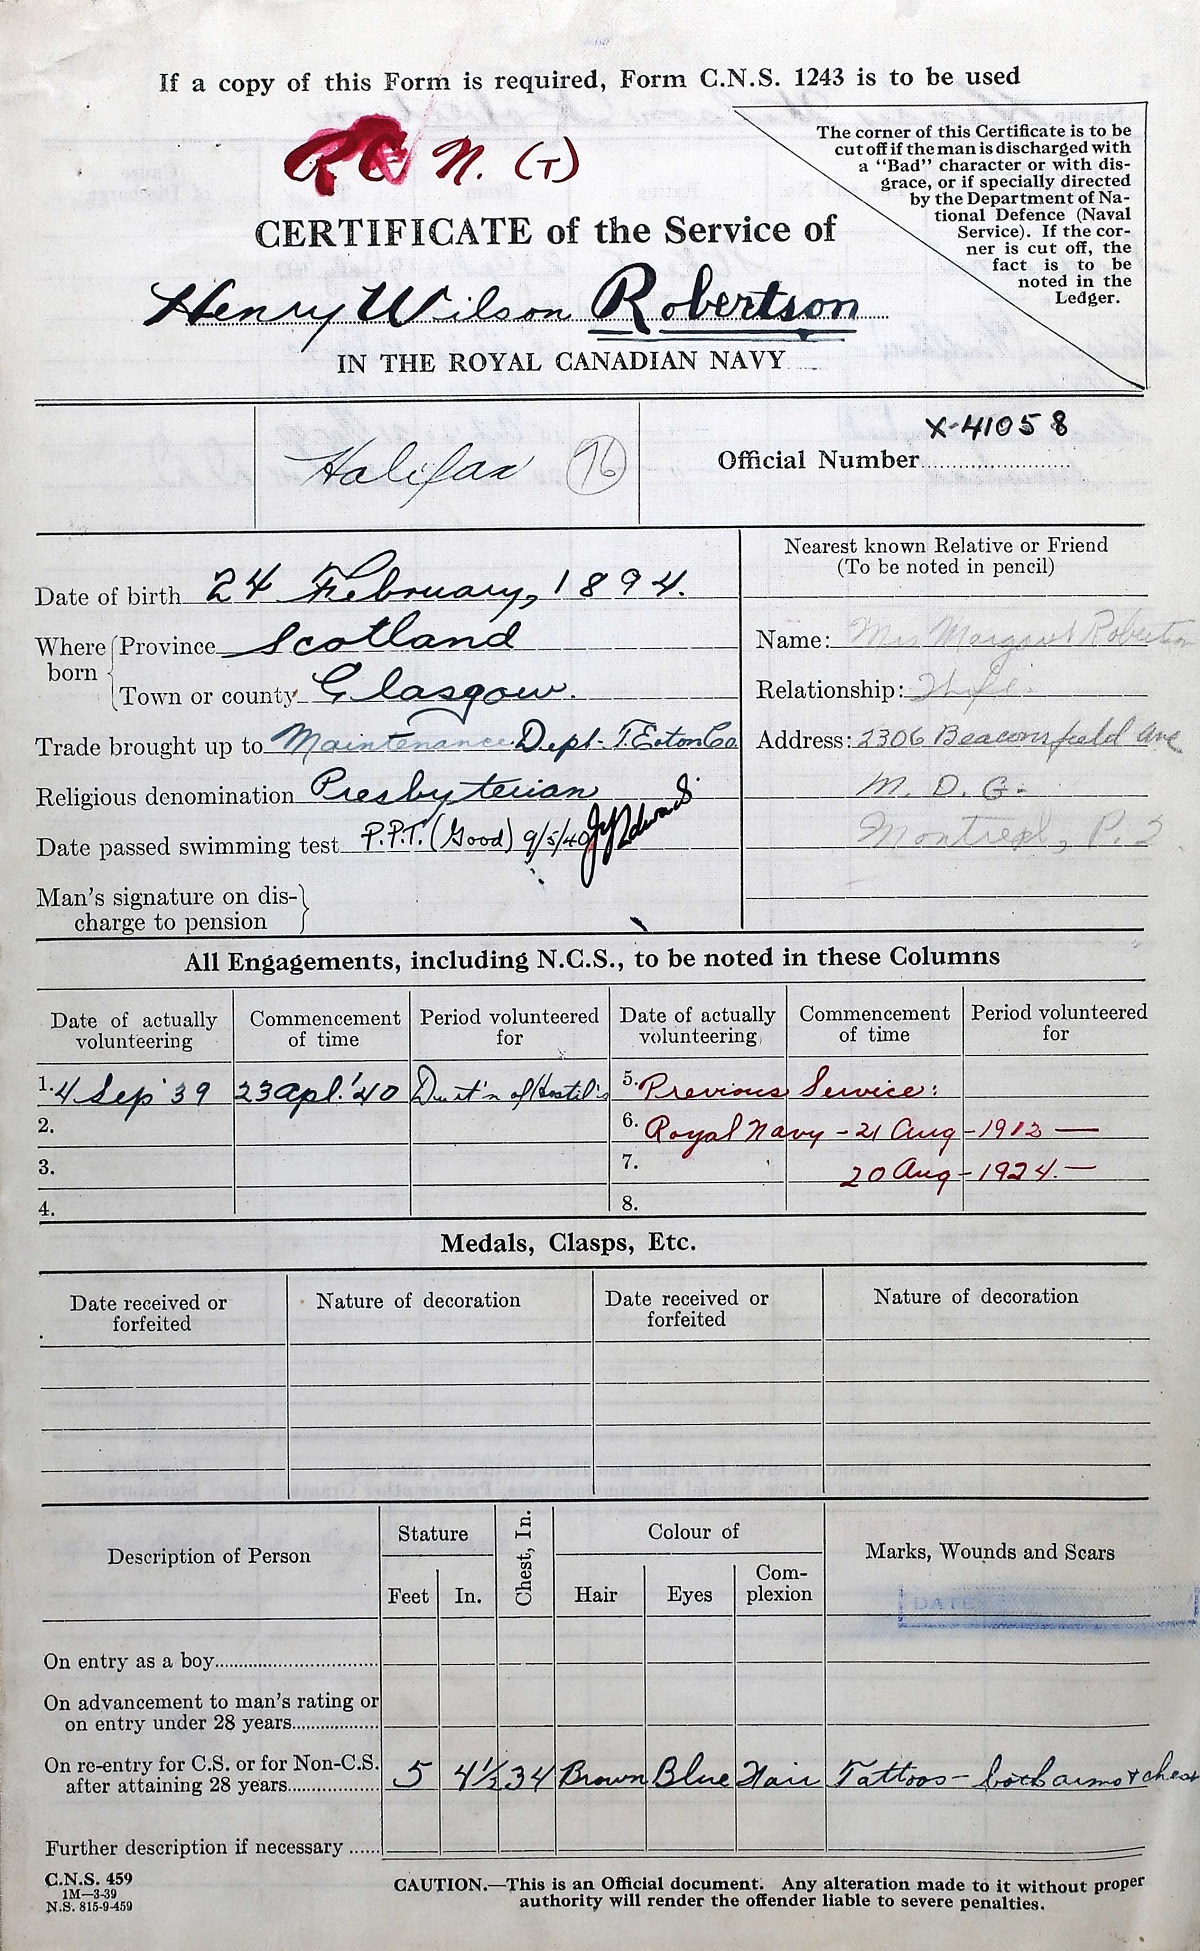 If a copy of this Form is required, Form C.N.S. 1243 is to be used
R C N. (T)
The corner of this Certificate is to be
cut off if the man is discharged with
a "Bad" character or with dis-
grace, or if specially directed
by the Department of Na-
tional Defence (Naval
Service). If the cor-
ner is cut off, the
fact is to be
noted in the
Ledger.
CERTIFICATE of the Service of
Henry Wilson Robertson
IN THE ROYAL CANADIAN NAVY
Halifax 76
X-41058
Official Number
Date of birth 24 February, 1894.
Where born Province Scotland
Town or county Glasgow.
Trade brought up to Maintenance Dept. T. Eaton Co.
Religious denomination Presbyterian
Date passed swimming test P.P.T. (Good) 9/5/40
Man's signature on dis-
charge to pension
Nearest known Relative or Friend
(To be noted in pencil)
Name: Mrs Margaret Robertson
Relationship: Wife.
Address: 2306 Beaconsfield Ave
M. D. G.
Montreal, P.Q.
All Engagements, including N.C.S., to be noted in these Columns
Date of actually volunteering Commencement of time Period volunteered for Date of actually volunteering Commencement of time Period volunteered for
1. 4 Sep '39 23 Apl. '40 Durt'n of Hostil's 5. Previous Service:
2. 6. Royal Navy - 21 Aug - 1912 —
3. 7. 20 Aug - 1924. —
4. 8.
Medals, Clasps, Etc.
Date received or forfeited Nature of decoration Date received or forfeited Nature of decoration
Description of Person Stature Chest, In. Colour of Marks, Wounds and Scars
Feet In. Hair Eyes Com-plexion
DATE
On entry as a boy
On advancement to man's rating or
on entry under 28 years
On re-entry for C.S. or for Non-C.S.
after attaining 28 years 5 4½ 34 Brown Blue Fair Tattoos - both arms & chest
Further description if necessary
C.N.S. 459
1M—3-39
N.S. 815-9-459
CAUTION.—This is an Official document. Any alteration made to it without proper
authority will render the offender liable to severe penalties.